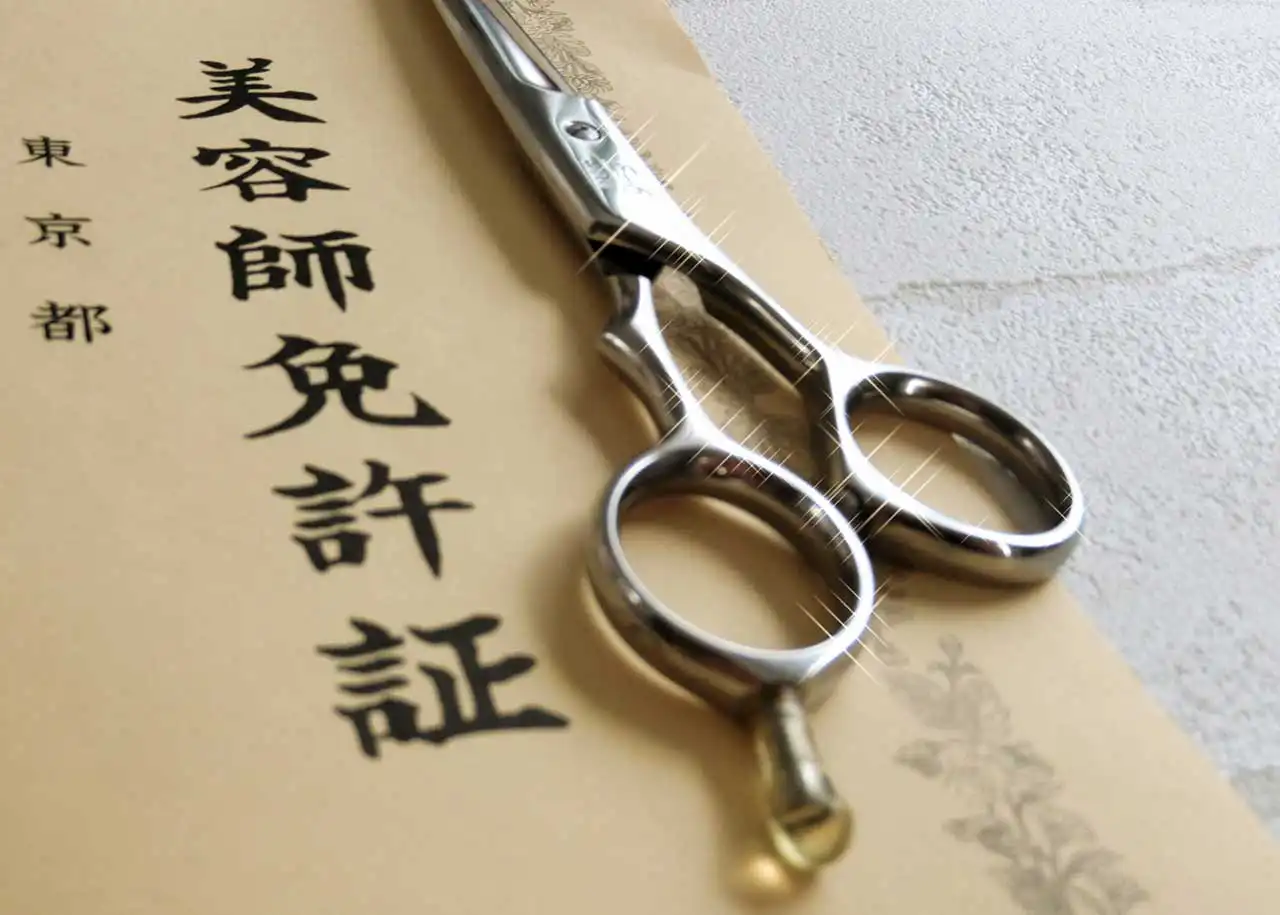 美容師免許証
東京都